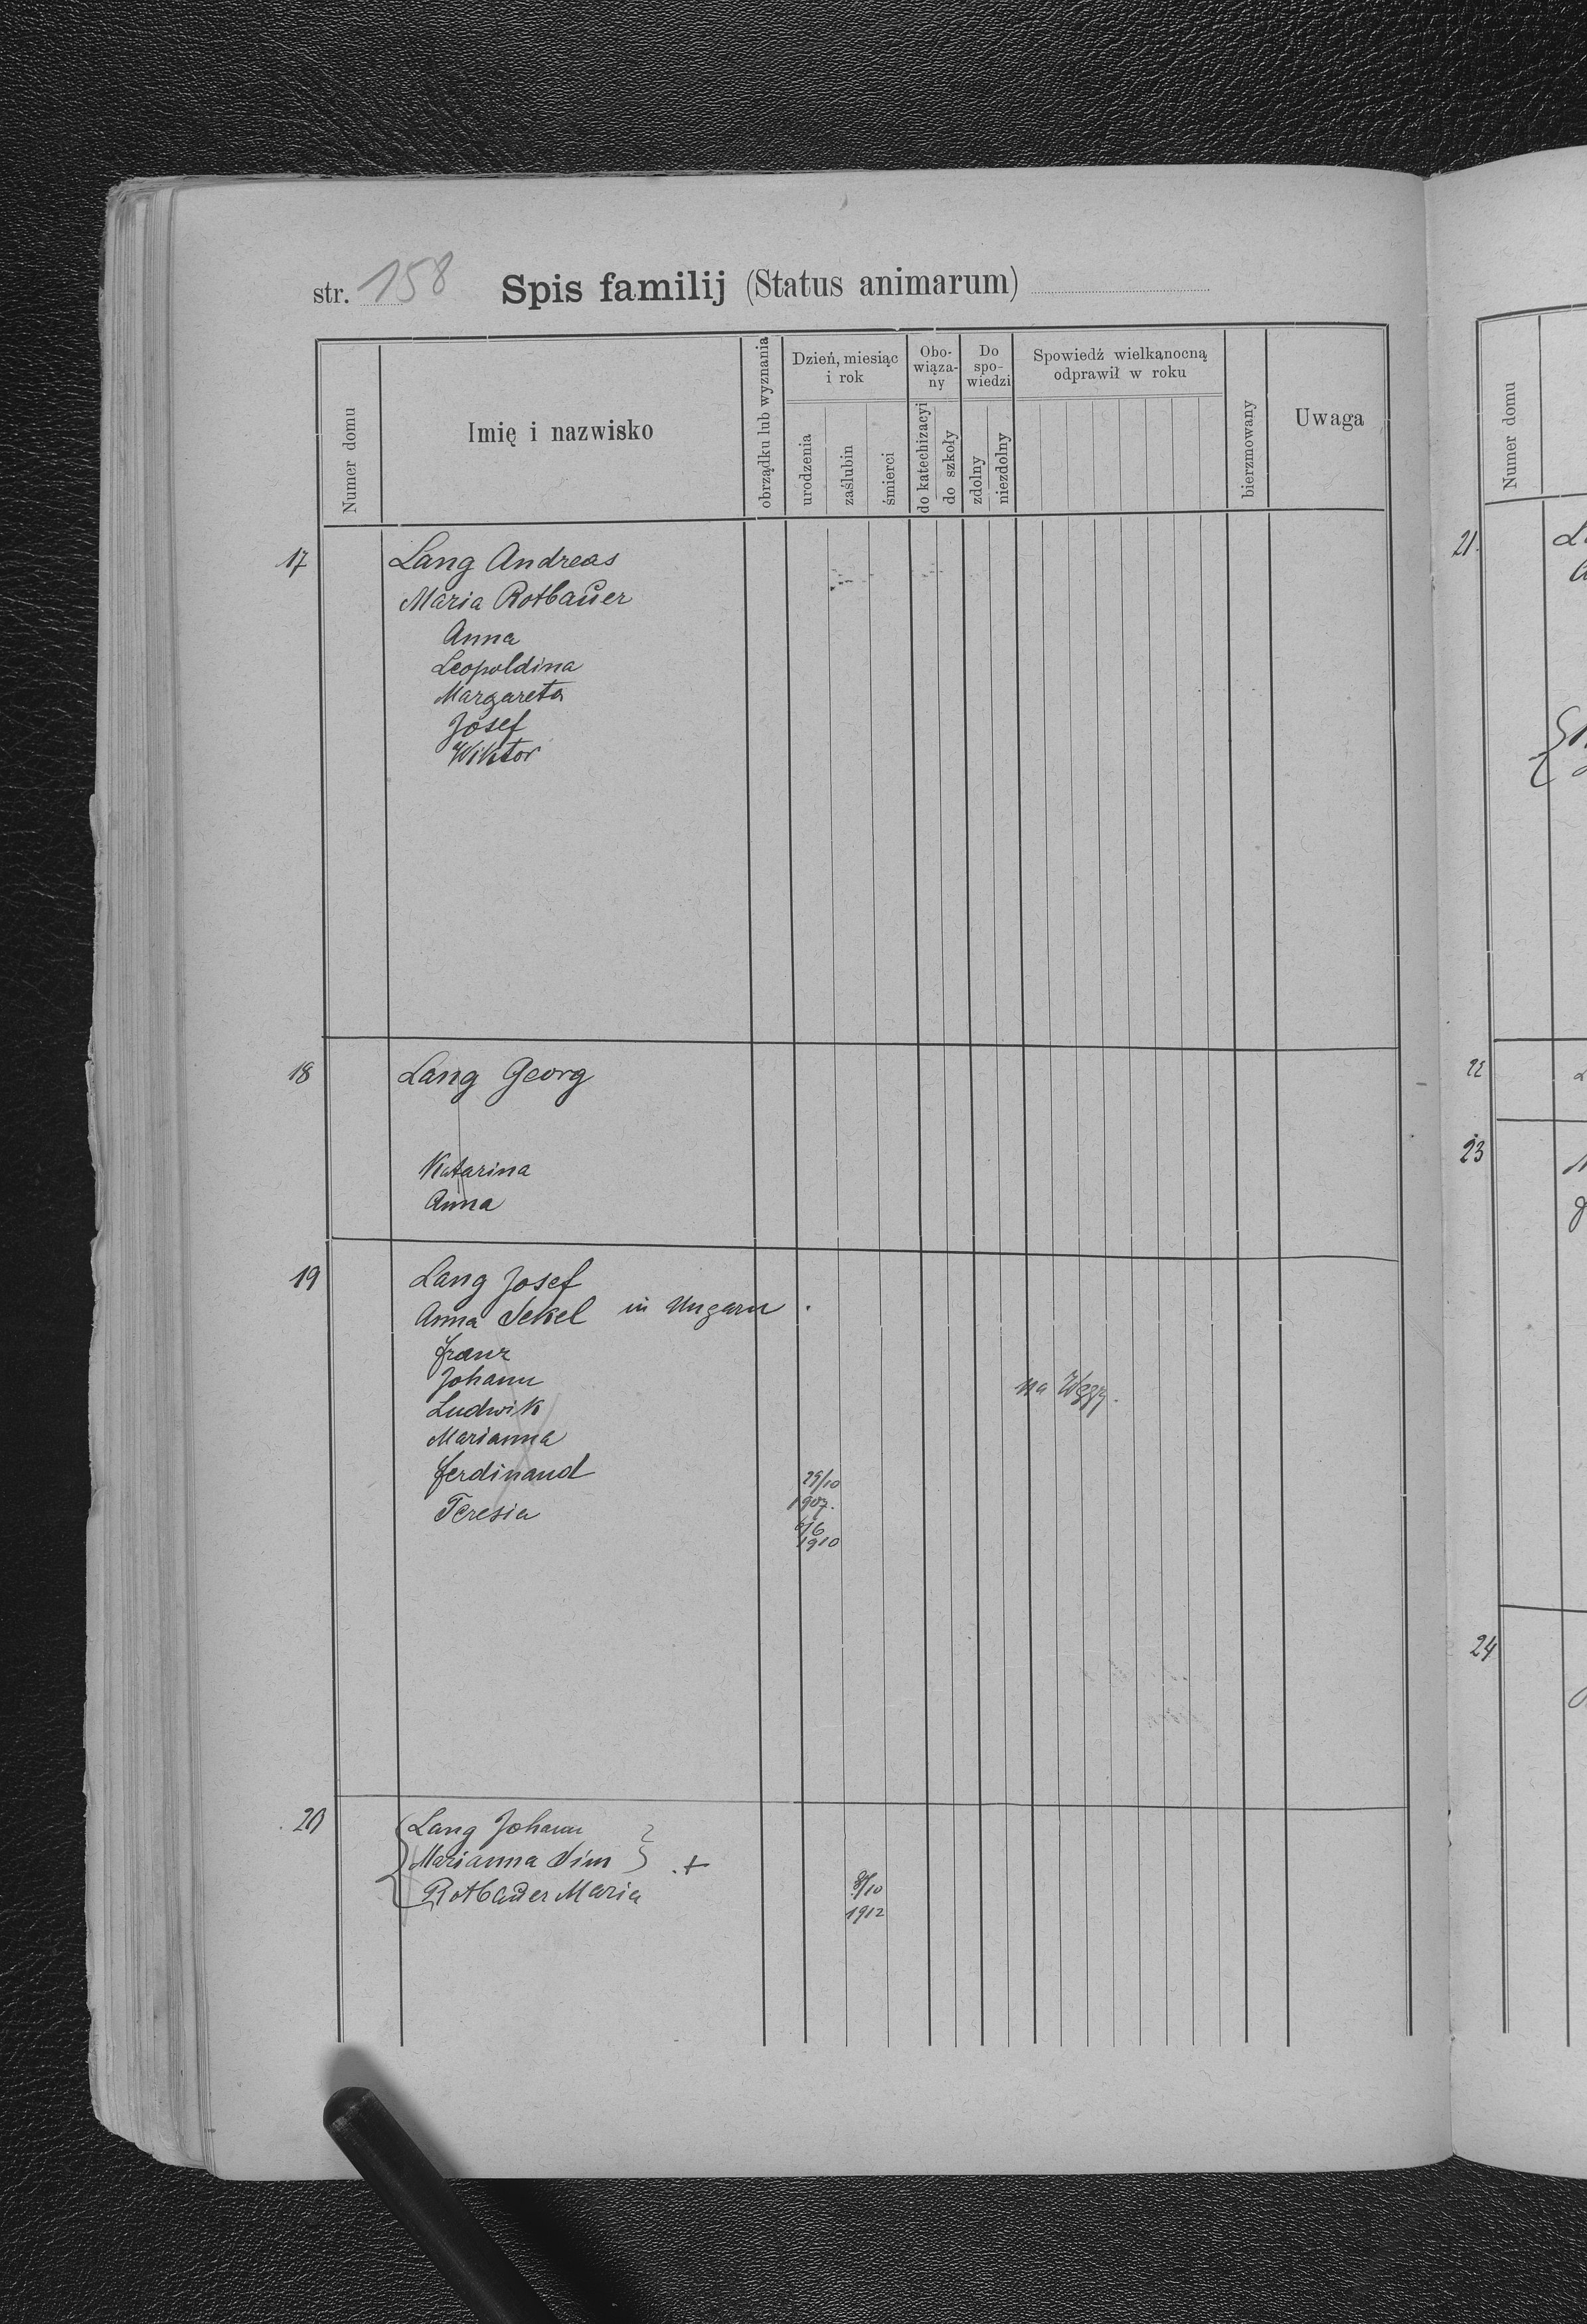 str. 158 Spis familij (Status animarum)
Numer domu
Imię i nazwisko
obrządku lub wyznania
Dzień, miesiąc i rok
urodzenia
zaślubin
śmierci
Obo-
wiąza-
ny
do katechizacyi
do szkoły
Do
spo-
wiedzi
zdolny
niezdolny
Spowiedź wielkanocną
odprawił w roku
bierzmowany
Uwaga
17 Lang Andreas
Maria Rotbaŭer
Anna
Leopoldina
Margareta
Josef
Wiktor
18 Lang Georg
Katarina
Anna
19 Lang Josef
Anna Sekel in Ungarn.
Franz
Johann
Ludwik
Marianna
Ferdinand 29/10
1907.
Teresia
1910
na
20 Lang Johann
Marianna Sim +
Rotbaŭer Maria 8/10
1912
Numer domu
21.
22
23
24